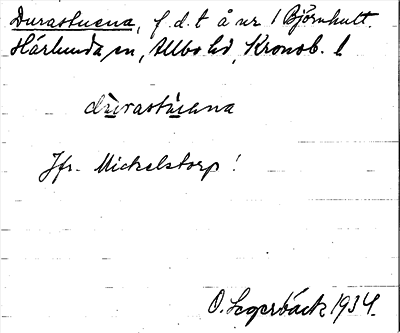 Durastuena, f.d.t å nr 1 Björnhult.
Härlunda sn, Allbo hd, Kronob. l
dùrastùena
Jfr. Mickelstorp!
O. Lagerbäck 1934.